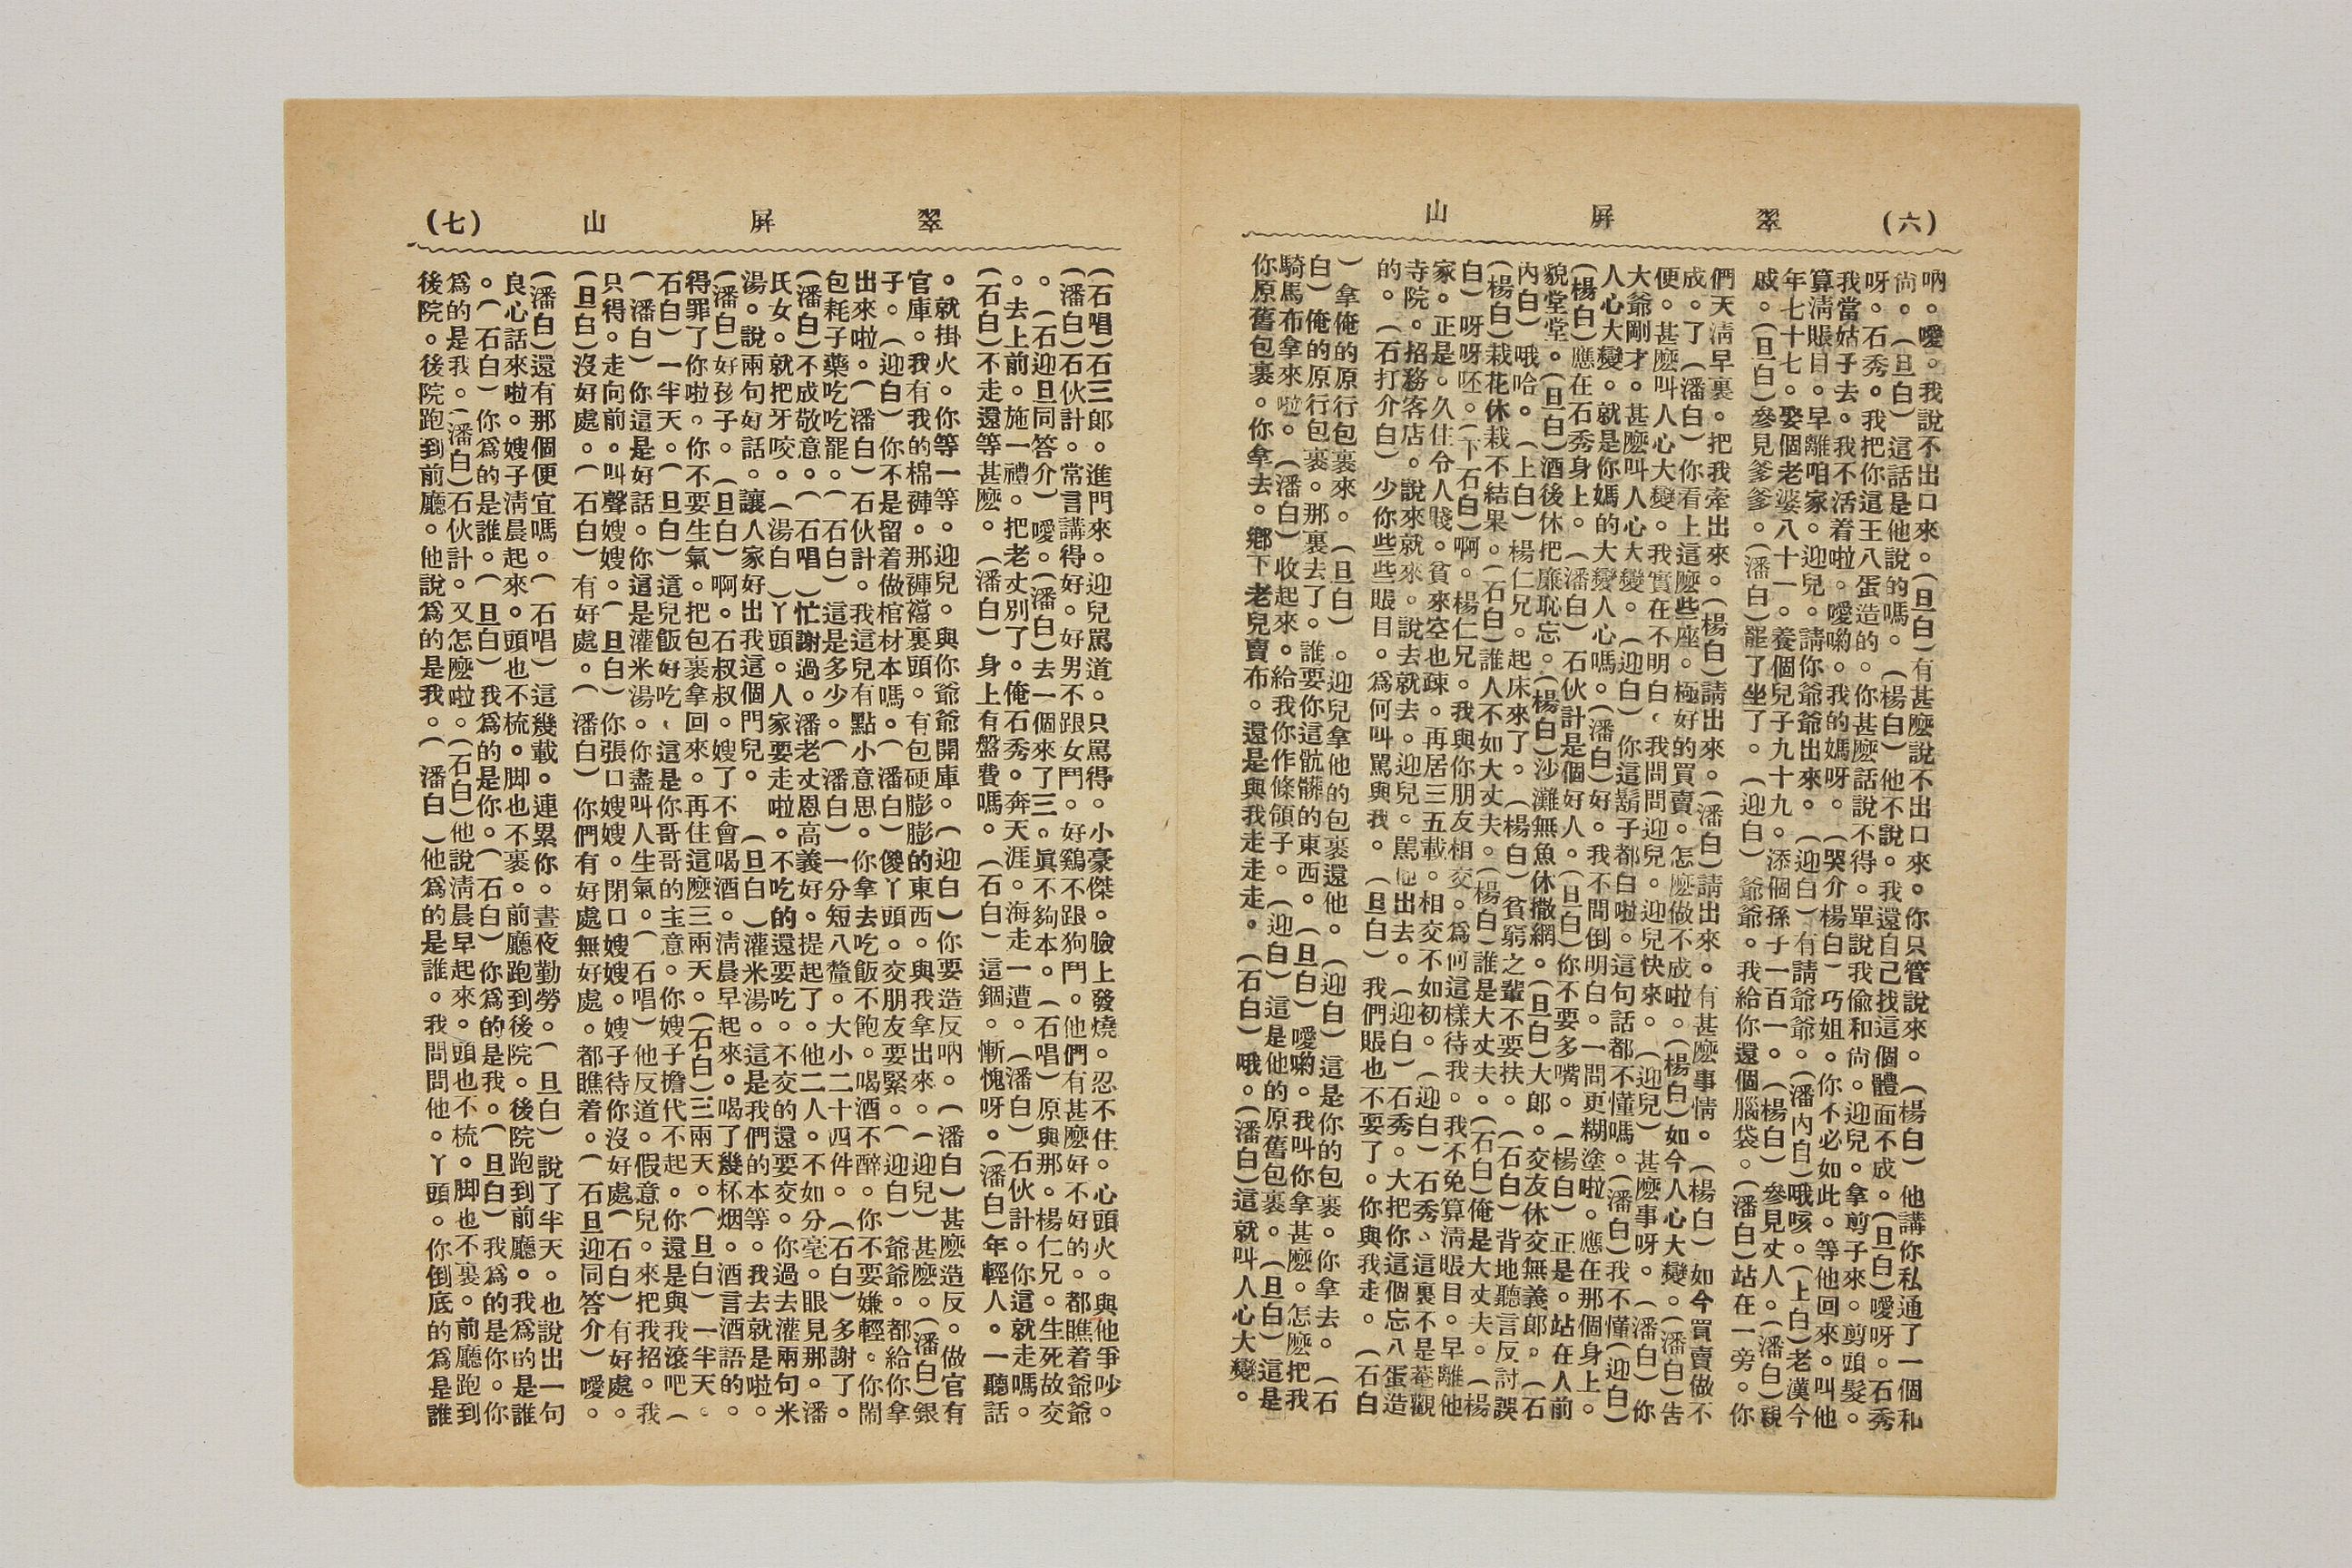 (六)
翠屏山
吶。噯。我說不出口來。(旦白)有甚麽說不出口來。你只管說來。(楊白)他講你私通了一個和
尙。(旦白)這話是他說的嗎。(楊白)他不說。我還自己找這個體面不成。(旦白)噯呀。石秀
呀。石秀。我把你這王八蛋造的。你甚麽話說不得。單說我偸和尙。迎兒。拿剪子來。剪頭髮。
我當姑子去。我不活着啦。噯喲。我的媽呀。(哭介楊白)巧姐。你不必如此。等他回來。叫他
算淸賬目。早離咱家。迎兒。請你爺爺出來。(迎白)有請爺爺。(潘內白)哦咳。(上白)老漢今
年七十七。娶個老婆八十一。養個兒子九十九。添個孫子一百一。(楊白)參見丈人。(潘白)親
戚。(旦白)參見爹爹。(潘白)罷了坐了。(迎白)爺爺。我給你還個腦袋。(潘白)站在一旁。你
們天淸早裏。把我牽出來。(楊白)請出來。(潘白)請出來。有甚麽事情。(楊白)如今買賣做不
成。了(潘白)你看上這麽些座。極好的買賣。怎麽做不成啦。(楊白)如今人心大變。(潘白)告
便。甚麽叫人心大變。我實在不明白、我問問迎兒。迎兒快來。(迎兒)甚麽事呀。(潘白)你
大爺剛才。甚麽叫人心大變。(迎白)你這鬍子都白啦。這句話都不懂嗎。(潘白)我不懂(迎白)
人心大變。就是你媽的大變人心嗎。(潘白)好。我不問倒明白。一問更糊塗啦。應在那個身上。
(楊白)應在石秀身上。(潘白)石伙計是個好人。(旦白)你不要多嘴。(楊白)正是。站在人前
貌堂堂。(旦白)酒後休把廉恥忘。(楊白)沙灘無魚休撒網。(旦白)大郞。交友休交無義郞。(石
內白)哦哈。(上白)楊仁兄。起床來了。(楊白)貧窮之輩不要扶。(石白)背地聽言反討誤
(楊白)栽花休栽不結果。(石白)誰人不如大丈夫。(楊白)誰是大丈夫。(石白)俺是大丈夫。(楊
白)呀呀呸。(下石白)啊。楊仁兄。我與你朋友相交。爲何這樣待我。我不免算淸賬目。早離他
家。正是。久住令人賤。貧來空也疎。再居三五載。相交不如初。(迎白)石秀、這裏不是菴觀
寺院。招務客店。說來就來。說去就去。迎兒。罵他出去。(迎白)石秀。大把你這個忘八蛋造
的。(石打介白)少你些些賬目。爲何叫罵與我。(旦白)我們賬也不要了。你與我走。(石白
)拿俺的原行包裹來。(旦白)。迎兒拿他的包裹還他。(迎白)這是你的包裹。你拿去。(石
白)俺的原行包裹。那裏去了。誰要你這骯髒的東西。(旦白)噯喲。我叫你拿甚麽。怎麽把我
騎馬布拿來啦。(潘白)收起來。給我你作條領子。(迎白)這是他的原舊包裹。(旦白)這是
你原舊包裹。你拿去。鄕下老兒賣布。還是與我走走走。(石白)哦。(潘白)這就叫人心大變。
翠屏山
(七)
(石唱)石三郞。進門來。迎兒罵道。只罵得。小豪傑。臉上發燒。忍不住。心頭火。與他爭吵。
(潘白)石伙計。常言講得好。好男不跟女鬥。好鷄不跟狗鬥。他們有甚麽好不好的。都瞧着爺爺
。(石迎旦同答介)噯。(潘白)去一個來了三。眞不夠本。(石唱)原與那。楊仁兄。生死故交
。去上前。施一禮。把老丈別了。俺石秀。奔天涯。海走一遭。(潘白)石伙計。你這就走嗎。
(石白)不走還等甚麽。(潘白)身上有盤費嗎。(石白)這錮。慚愧呀。(潘白)年輕人。一聽話
。就掛火。你等一等。迎兒。與你爺爺開庫。(迎白)你要造反吶。(潘白)甚麽造反。做官有
官庫。我有我的棉褲。那褲襠裏頭。有包硬膨膨的東西。與我拿出來。(迎兒)甚麽。(潘白)銀
子。(迎白)你不是留着做棺材本嗎。(潘白)傻丫頭。交朋友要緊。(迎白)爺爺。都給你拿
出來啦。(潘白)石伙計。我這兒有點小意思。你拿去吃飯不飽。喝酒不醉。你不要嫌輕。你鬧
包耗子藥吃吃罷。(石白)這是多少。(潘白)一分短八釐。大小二十四件。(石白)多謝了。
(潘白)不成敬意。(石唱)忙謝過。潘老丈恩高義好。提起了。他二人。不如分毫。眼見那。潘
氏女。就把牙咬。(湯白)丫頭。人家要走啦。不吃的還要吃。不交的還要交。你過去灌兩句米
湯。說兩句好話。讓人家好出我這個門兒。(旦白)灌米湯。這是我們的本等。我去就是啦。
(潘白)好孩子。(旦白)啊。石叔叔。嫂了不會喝酒。淸晨早起來。喝了幾杯烟。酒言酒語的。
得罪了你啦。你不要生氣。把包裹拿回來。再住這麽三兩天。(石白)三兩天。(旦白)一半天。
石白)一半天。(旦白)這兒飯好吃、這是你哥哥的主意。你嫂子擔代不起。你還是與我滾吧(
(潘白)你這是好話。你這是灌米湯。你盡叫人生氣。(石唱)他反道。假意兒。來把我招。我
只得。走向前。叫聲嫂嫂。(旦白)你張口嫂嫂。閉口嫂嫂。嫂子待你沒好處(石白)有好處。
(旦白)沒好處。(石白)有好處。(潘白)你們有好處無好處。都瞧着。(石旦迎同答介)噯。
(潘白)還有那個便宜嗎。(石唱)這幾載。連累你。晝夜勤勞。(旦白)說了半天。也說出一句
良心話來啦。嫂子淸晨起來。頭也不梳。脚也不裹。前廳跑到後院。後院跑到前廳。我爲的是誰
。(石白)你爲的是誰。(旦白)我爲的是你。(石白)你爲的是我。(旦白)我爲的是你。你
爲的是我。(潘白)石伙計。又怎麽啦。(石白)他說淸晨早起來。頭也不梳。脚也不裹。前廳跑到
後院。後院跑到前廳。他說爲的是我。(潘白)他爲的是誰。我問問他。丫頭。你倒底的爲是誰